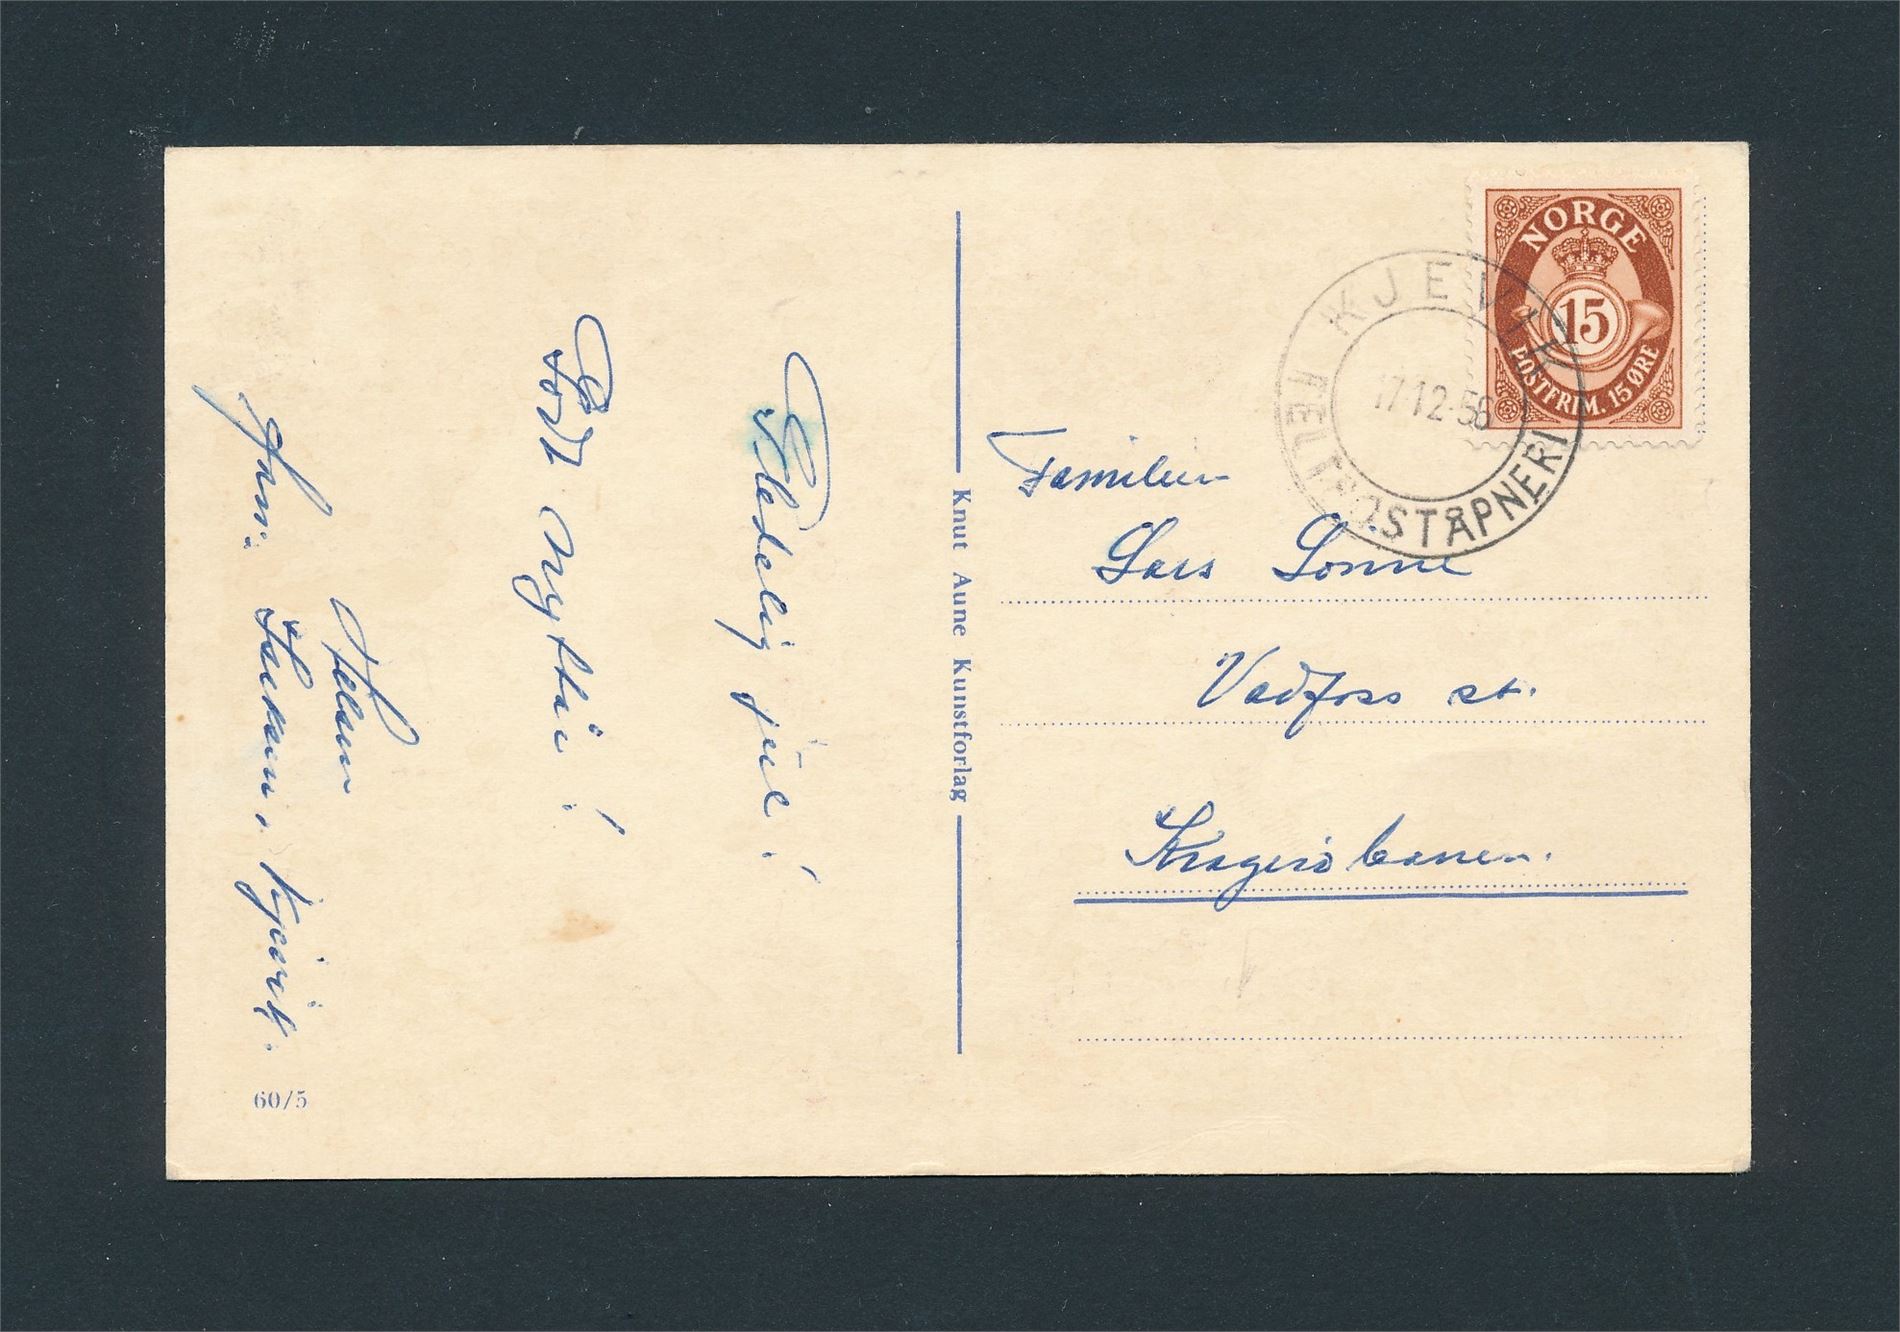 Gledelig jul!
Godt nyttår!
Hilsen
Fam. Isaksen, Kjevik.
60/5
Knut Aune Kunstforlag
NORGE
15
POSTFRIM. 15 ØRE
KJEVIK
17-12-56
FELTPOSTÅPNERI
Familien
Lars Sonne
Vadfoss st.
Kragerøbanen.